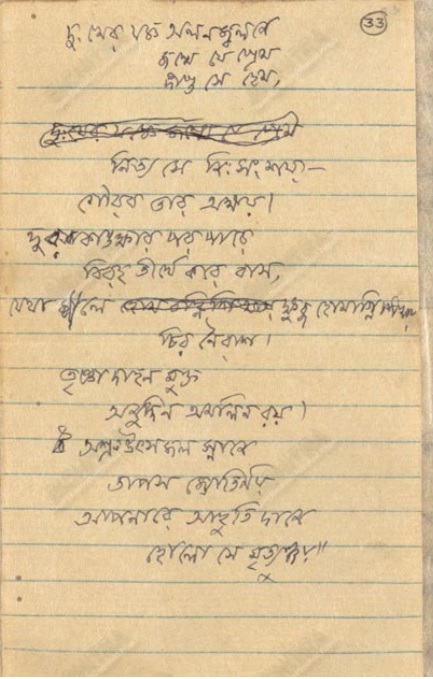 33
দুঃখের যজ্ঞ অনলজ্বলনে
জন্মে যে প্রেম
দীপ্ত সে হেম,
দুঃখের যজ্ঞে জন্মে যে প্রেম
নিত্য সে নিঃসংশয়—
গৌরব তার অক্ষয়।
দুরাকাঙ্ক্ষার পরপারে
বিরহ তীর্থে করে বাস,
যেথা জ্বলে ক্ষুব্ধ হোমাগ্নিশিখায়
চির নৈরাশ।
তৃষ্ণাদাহন মুক্ত
অনুদিন অমলিন রয়।
অশ্রুউৎসজল স্নানে
তাপস জ্যোতির্ময়
আপনারে আহুতি দানে
হোলো সে মৃত্যুঞ্জয়॥